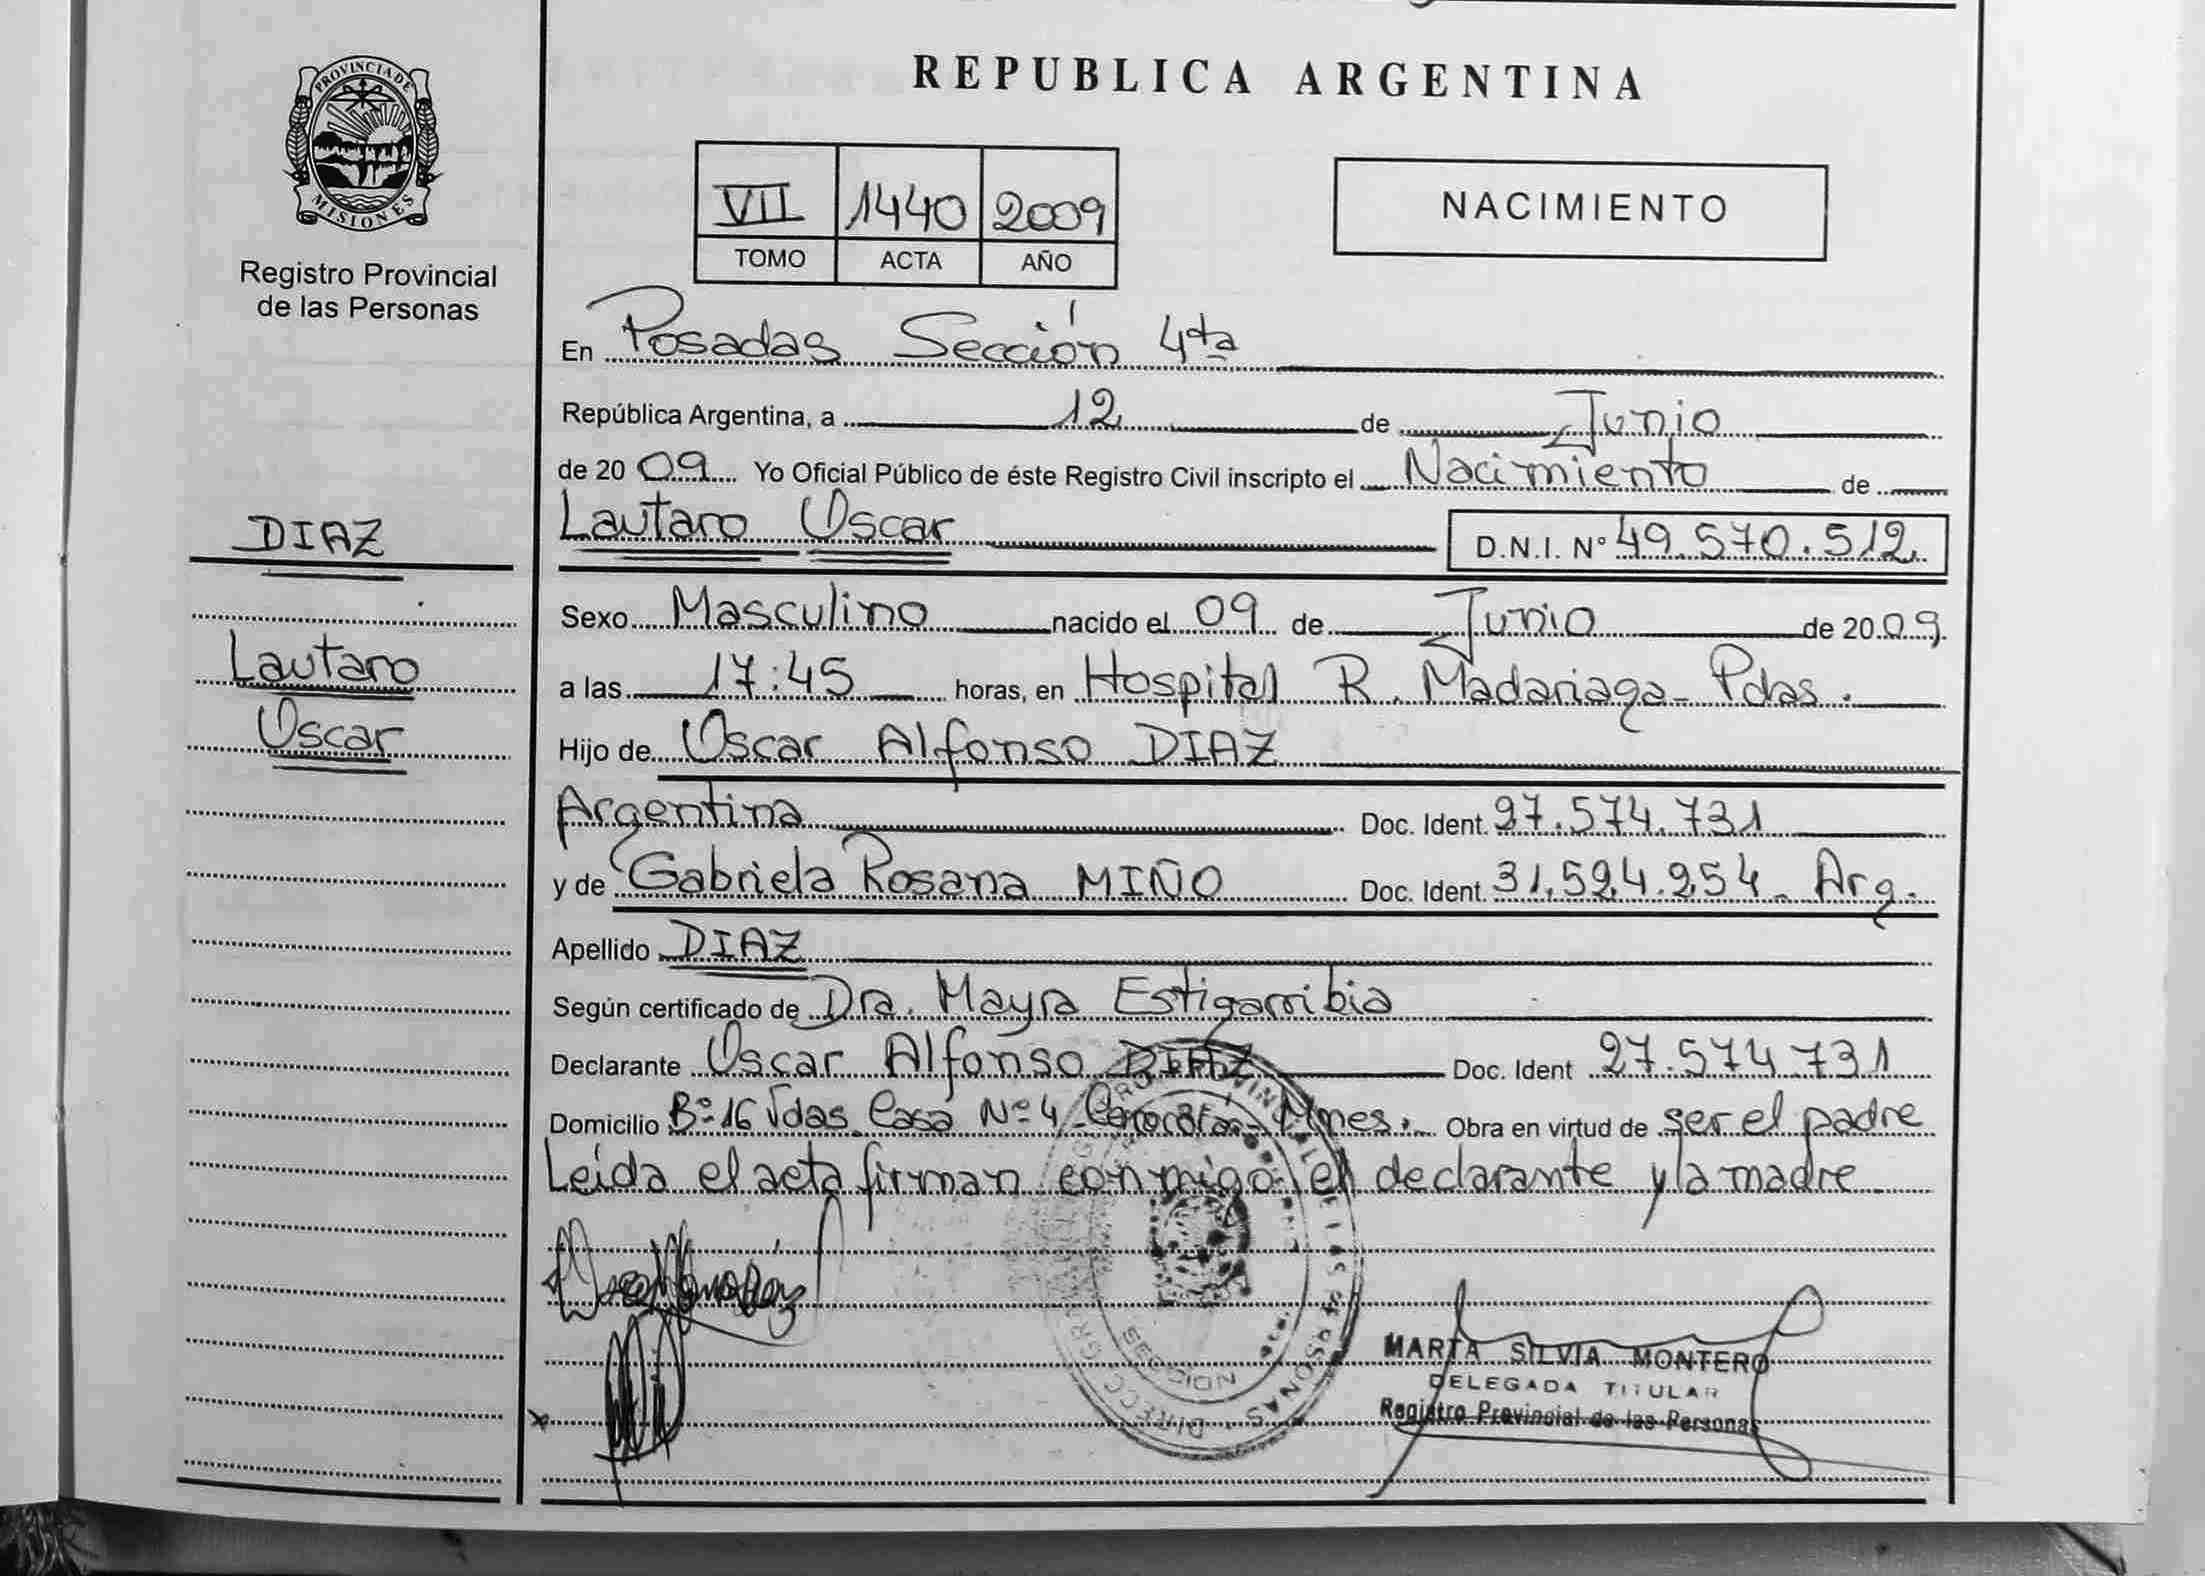 PROVINCIA DE
MISIONES
Registro Provincial
de las Personas
DIAZ
Lautaro
Oscar
REPUBLICA ARGENTINA
VII 1440 2009
TOMO ACTA AÑO
NACIMIENTO
En Posadas Sección 4ta
República Argentina, a 12 de Junio
de 2009 Yo Oficial Público de éste Registro Civil inscripto el Nacimiento de
Lautaro Oscar D.N.I. Nº 49.570.512
Sexo Masculino nacido el 09 de Junio de 2009.
a las 17:45 horas, en Hospital R. Madariaga - Pdas.
Hijo de Oscar Alfonso DIAZ
Argentina Doc. Ident. 27.574.731
y de Gabriela Rosana MIÑO Doc. Ident. 31.524.254 - Arg.
Apellido DIAZ
Según certificado de Dra. Mayra Estigarribia
Declarante Oscar Alfonso DIAZ Doc. Ident 27.574.731
Domicilio Bº 16 Vdas. Casa Nº 4 - Mnes. Obra en virtud de ser el padre
Leída el acta firman conmigo el declarante y la madre
MARTA SILVIA MONTERO
DELEGADA TITULAR
Registro Provincial de las Personas